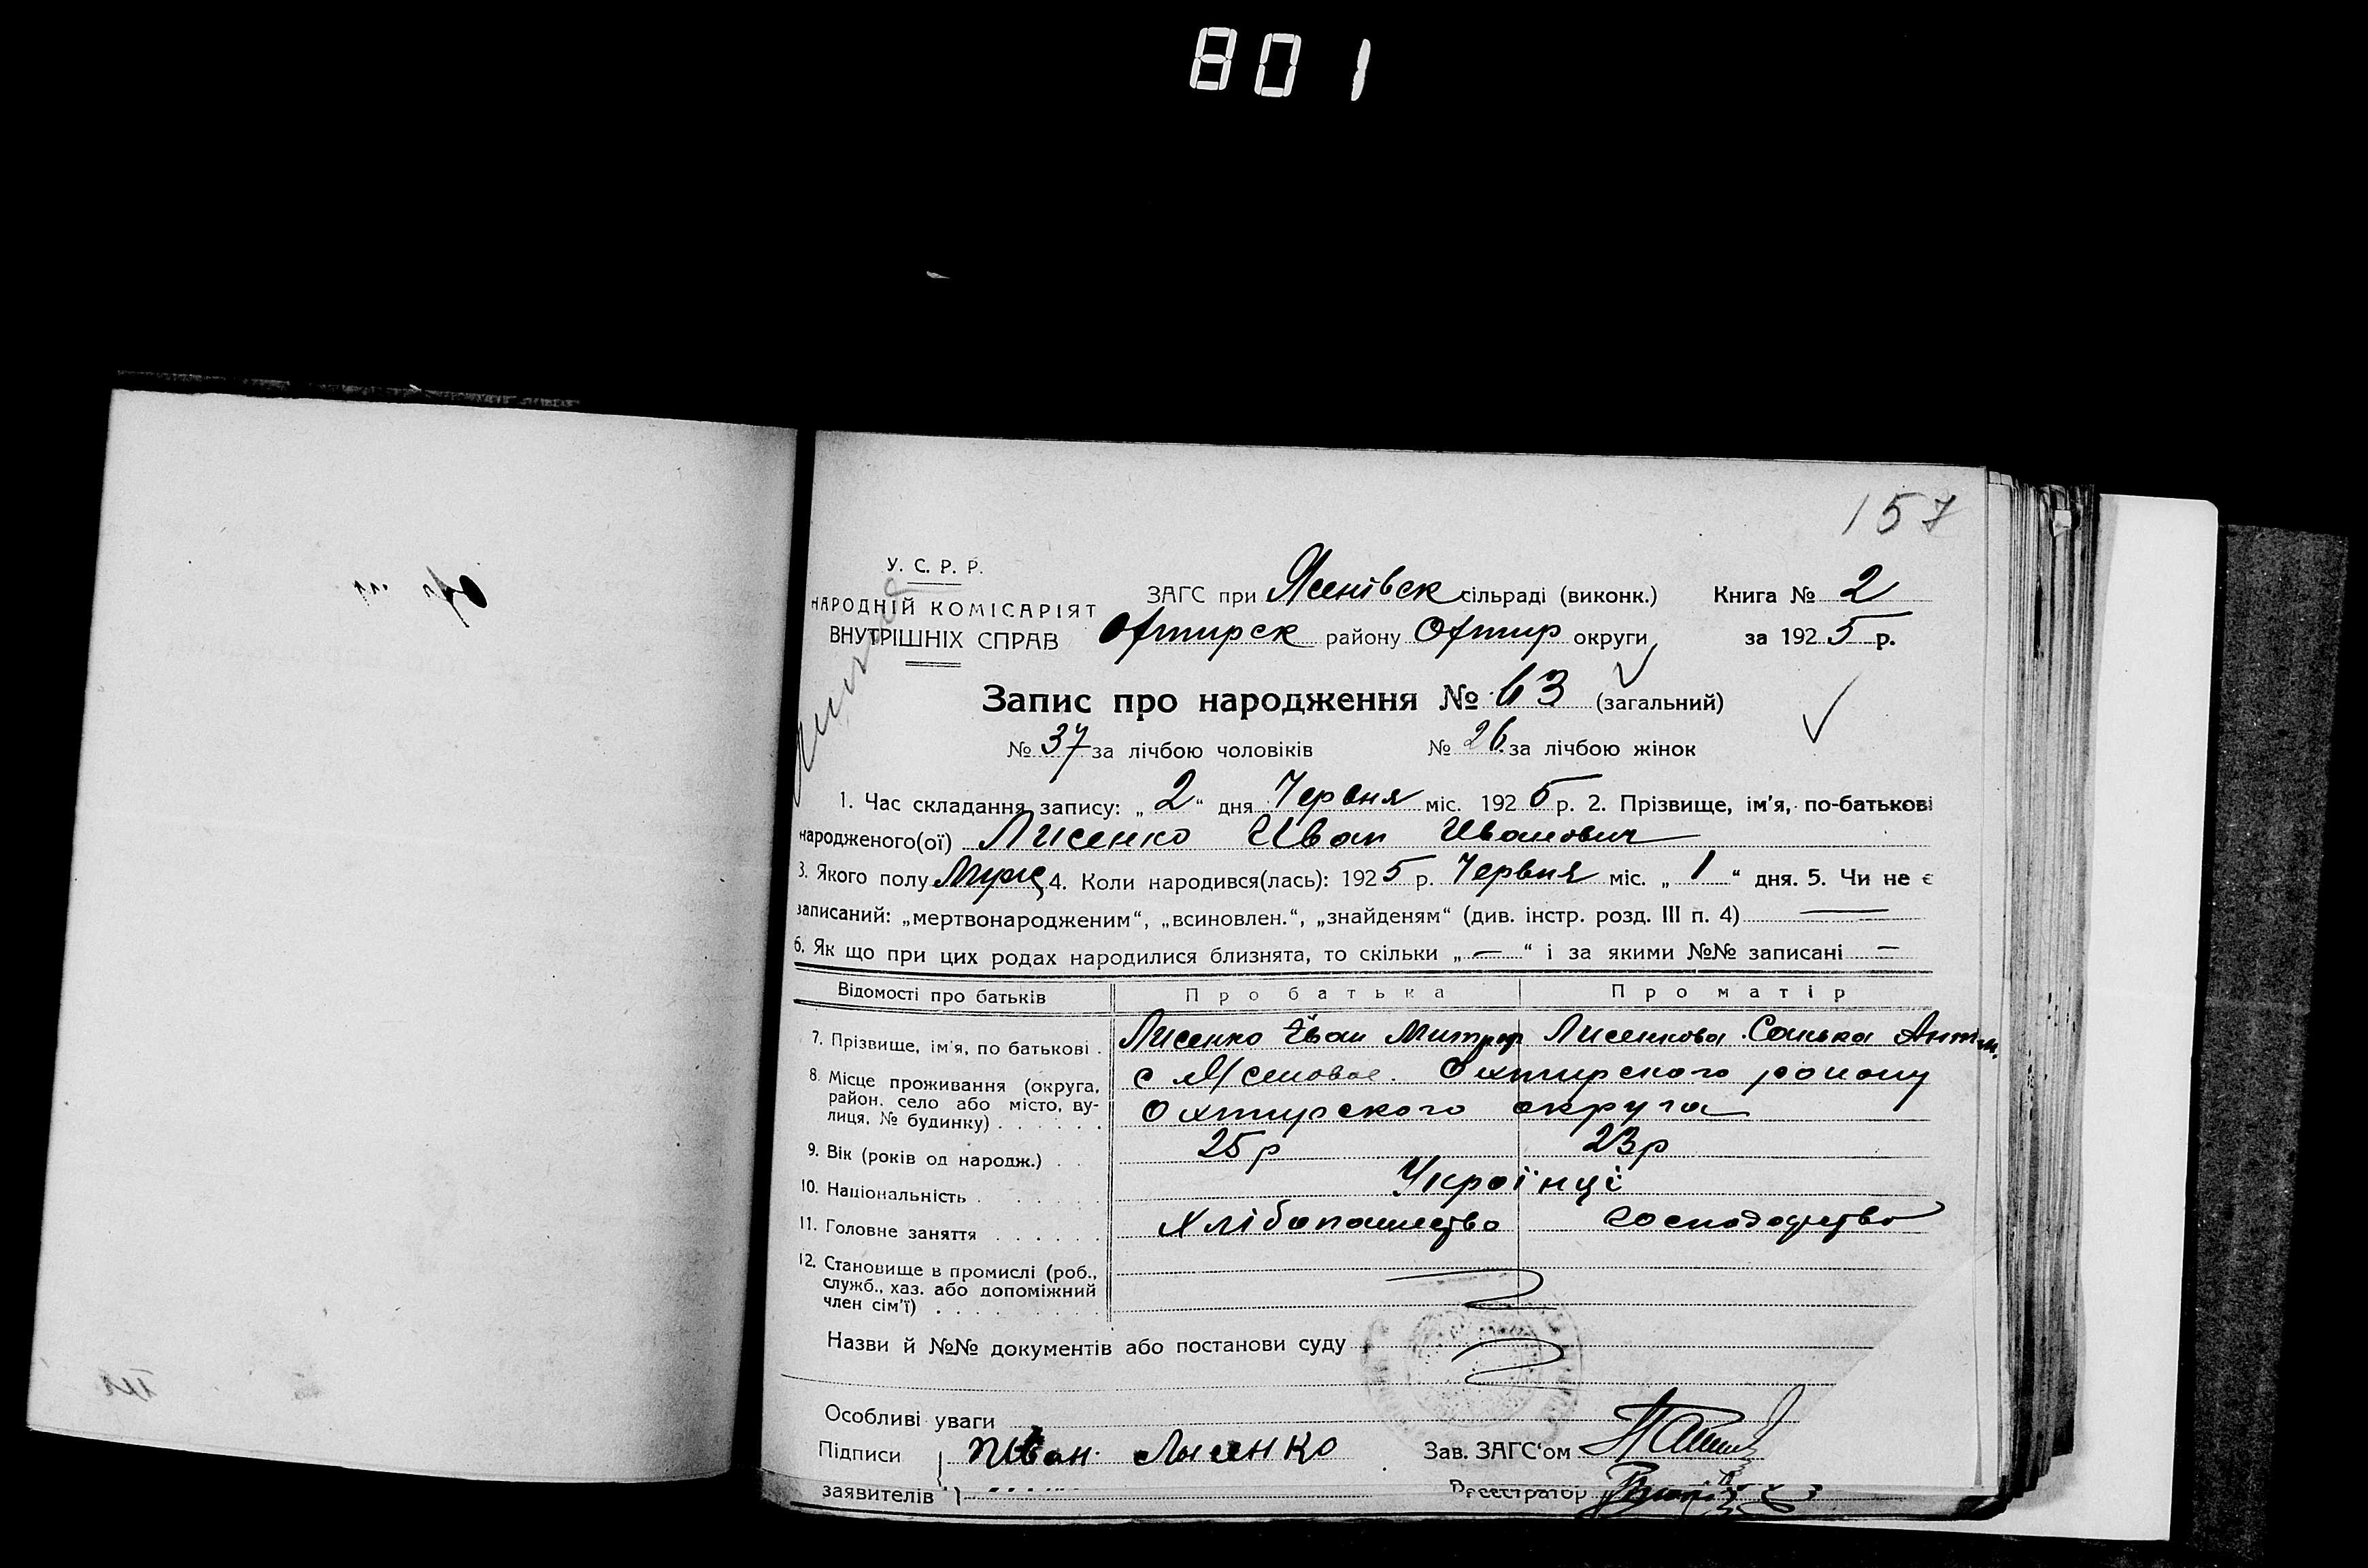 801
157
У. С. Р. Р.
НАРОДНІЙ КОМІСАРІЯТ
ВНУТРІШНІХ СПРАВ
ЗАГС при Ясенівск сільраді (виконк.) Книга № 2
Охтирск району Охтир округи за 1925 р.
Запис про народження № 63 (загальний)
№ 37 за лічбою чоловіків № 26 за лічбою жінок
1. Час складання запису: „2“ дня Червня міс. 1925 р. 2. Прізвище, ім'я, по-батькові
народженого(ої) Лисенко Иван Иванович
3. Якого полу Муж 4. Коли народився(лась): 1925 р. Червня міс. „1“ дня. 5. Чи не є
записаний: „мертвонародженим“, „всиновлен.“, „знайденям“ (див. інстр. розд. III п. 4) —
6. Як що при цих родах народилися близнята, то скільки „—“ і за якими №№ записані —
Відомості про батьків Про батька Про матір
7. Прізвище, ім'я, по батькові . Лисенко Іван Митроф Лисенкова Санька Антон.
8. Місце проживання (округа, район, село або місто, вулиця, № будинку) . . . . . . с Ясеновое. Охтирского району
Охтирского округа
9. Вік (років од народж.) . . 25 р 23 р
10. Національність . . . . . . Українці
11. Головне заняття . . . . . . Хлібопашество господарство
12. Становище в промислі (роб.,
служб., хаз. або допоміжний
член сім'ї) . . . . . . . .
Назви й №№ документів або постанови суду
Особливі уваги
Підписи Иван Лысенко Зав. ЗАГС'ом
заявителів Реєстратор